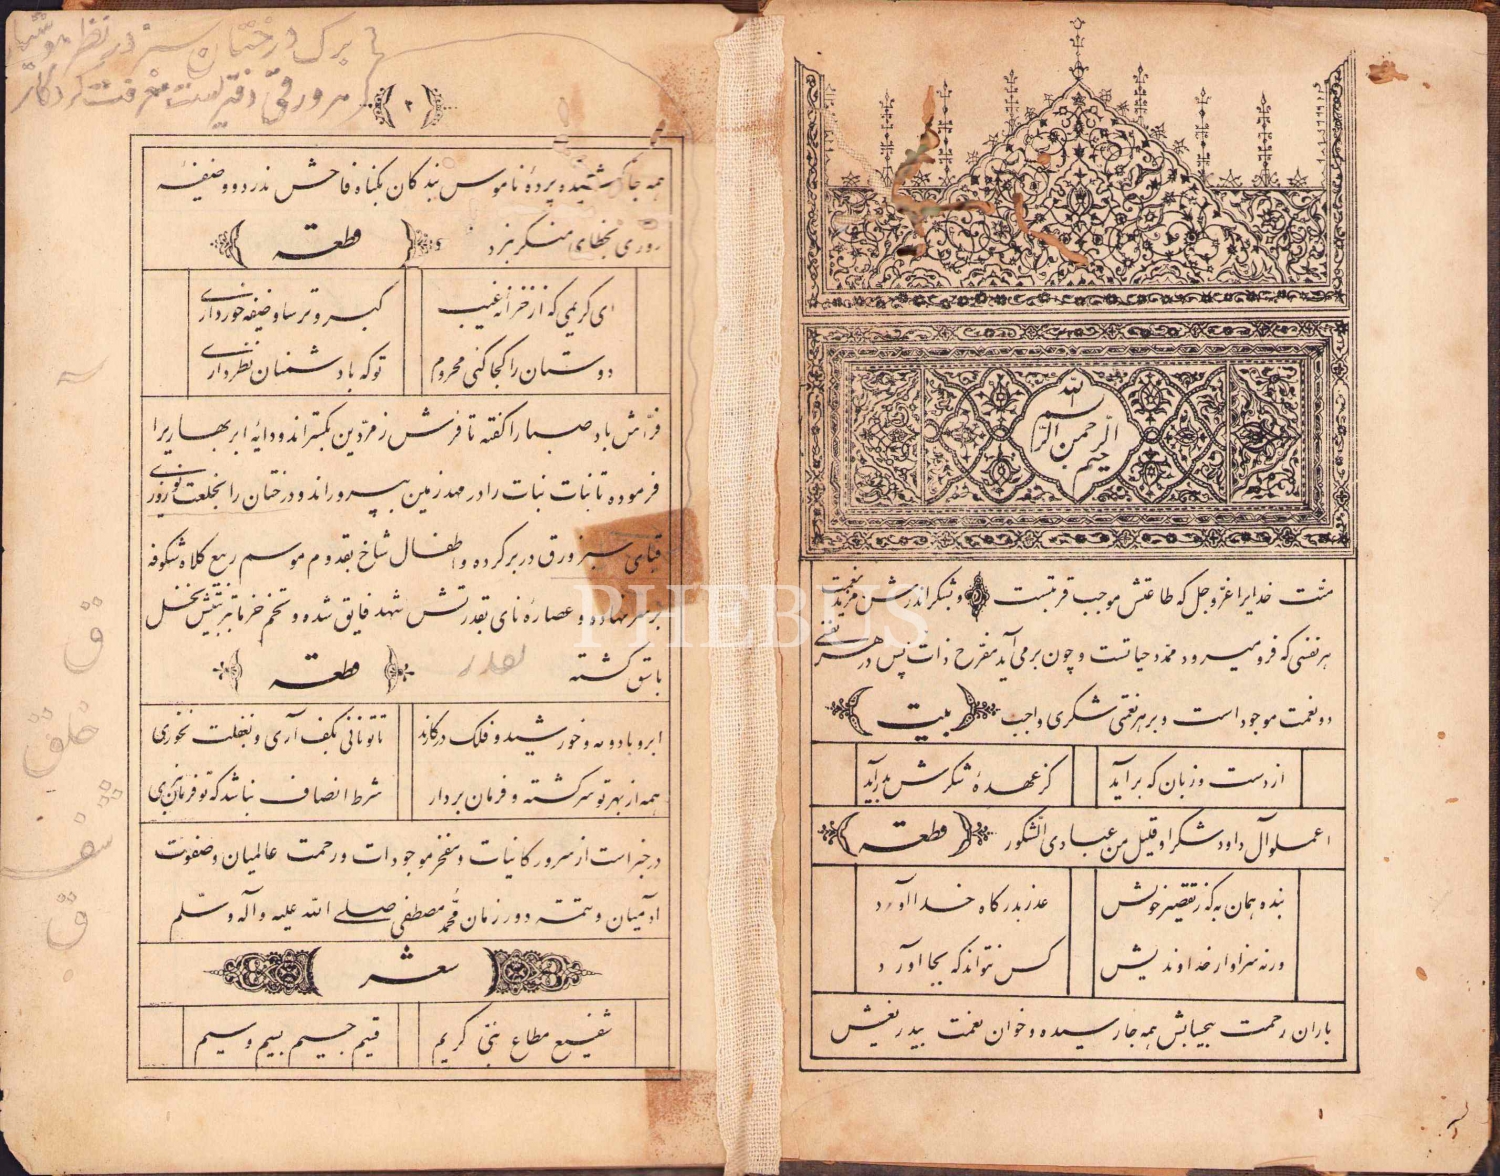 بسم الله الرحمن الرحیم
منت خدایرا عزوجل که طاعتش موجب قربتست و بشکر اندرش مزید نعمت
هر نفسی که فرو میرود ممد حیاتست و چون برمی آید مفرح ذات پس در هر نفسی
دو نعمت موجود است و بر هر نعمتی شکری واجب بیت
از دست و زبان که برآید کز عهدهٔ شکرش بدرآید
اعملوا آل داود شکرا و قلیل من عبادی الشکور قطعه
بنده همان به که ز تقصیر خویش عذر بدرکاه خدا آورد
ورنه سزاوار خداوندیش کس نتواند که بجا آورد
باران رحمت بیحسابش همه جا رسیده و خوان نعمت بیدریغش
برک درختان سبز در نظر هوشیار
هر ورقی دفتریست معرفت کردکار
۲
همه جا کشیده پردهٔ ناموس بندکان بکناه فاحش ندرد و وضیفهٔ
روزی بخطای منکر نبرد قطعه
ای کریمی که از خزانه غیب کبر و ترسا وضیفه خور داری
دوستان را کجا کنی محروم تو که با دشمنان نظر داری
فراش باد صبا را کفته تا فرش زمردین بکستراند و دایهٔ ابر بهاریرا
فرموده تا بنات نبات را در مهد زمین بپروراند و درختان را بخلعت نوروزی
قبای سبز ورق در بر کرده و اطفال شاخ بقدوم موسم ربیع کلاه شکوفه
بر سر نهاده و عصارهٔ نای بقدرتش شهد فایق شده و تخم خرما بتربیتش نخل
باسق کشته قطعه
ابر و باد و مه و خورشید و فلک در کارند تا تو نانی بکف آری و بغفلت نخوری
همه از بهر تو سرکشته و فرمان بردار شرط انصاف نباشد که تو فرمان نبری
در خبر است از سرور کاینات و مفخر موجودات و رحمت عالمیان و صفوت
ادمیان و تتمه دور زمان محمد مصطفی صلی الله علیه وآله وسلم
شعر
شفیع مطاع نبی کریم قسیم جسیم بسیم وسیم
ق
خلق
ق
PHEBUS